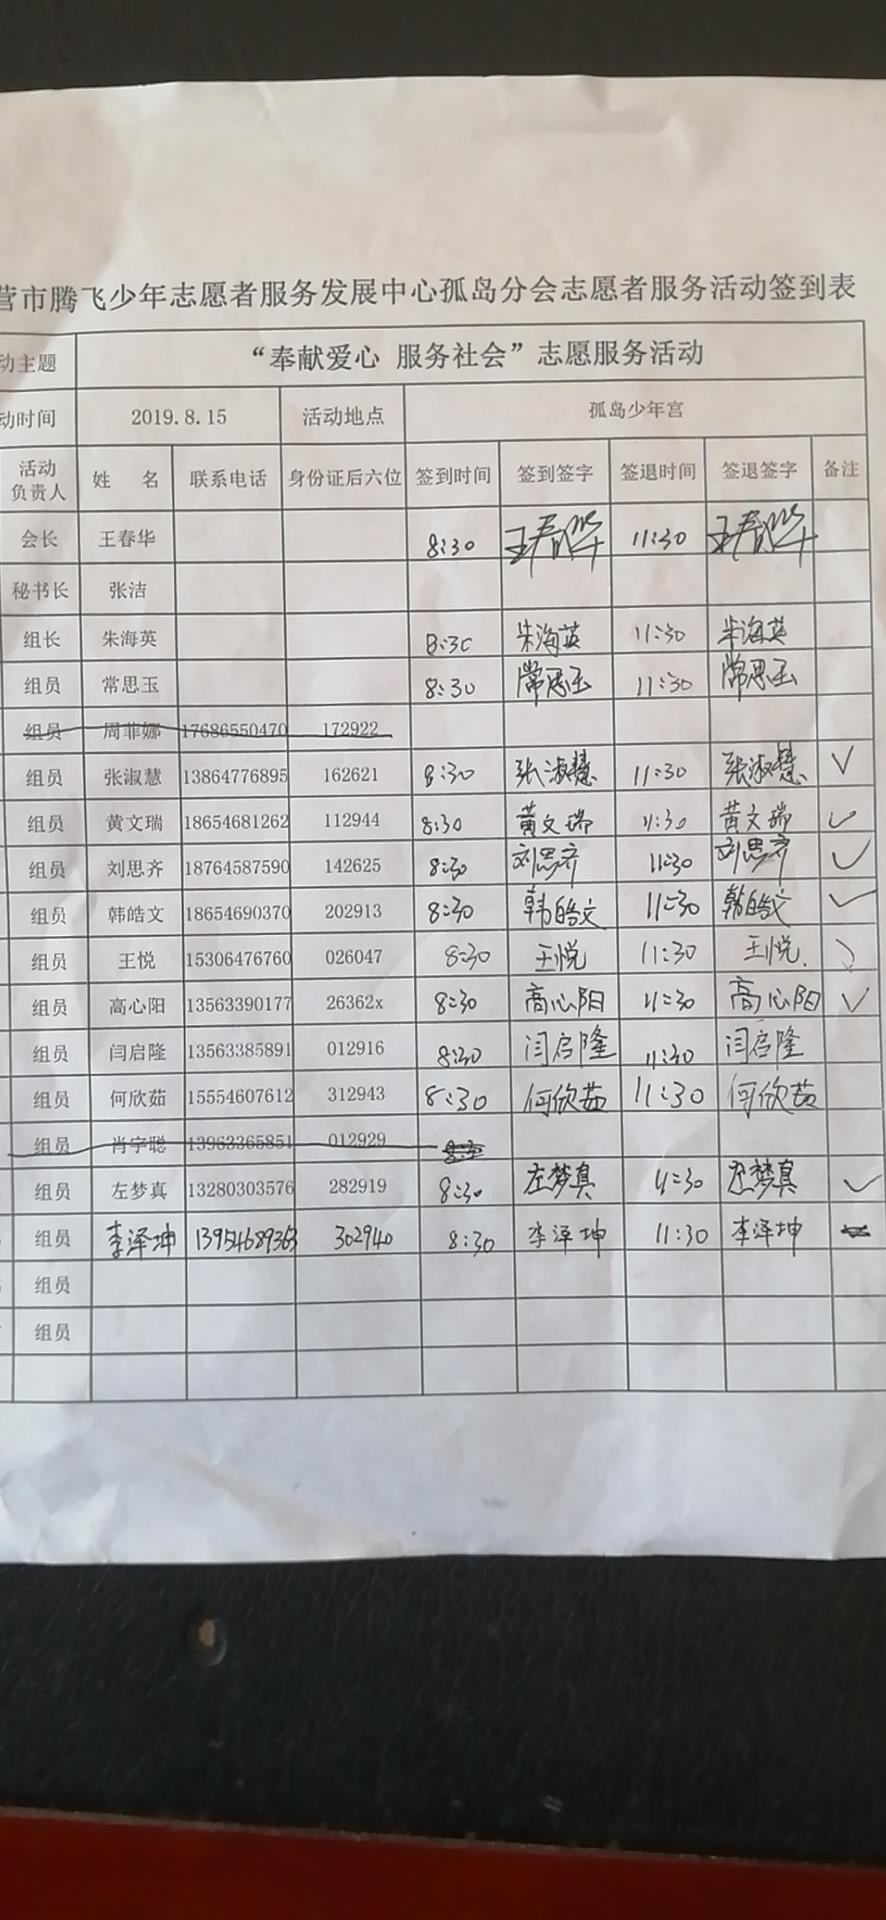 营市腾飞少年志愿者服务发展中心孤岛分会志愿者服务活动签到表
动主题 “奉献爱心 服务社会”志愿服务活动
动时间 2019.8.15 活动地点 孤岛少年宫
活动负责人 姓 名 联系电话 身份证后六位 签到时间 签到签字 签退时间 签退签字 备注
会长 王春华 8:30 王春华 11:30 王春华
秘书长 张洁
组长 朱海英 8:30 朱海英 11:30 朱海英
组员 常思玉 8:30 常思玉 11:30 常思玉
组员 周菲娜 17686550470 172922
组员 张淑慧 13864776895 162621 8:30 张淑慧 11:30 张淑慧 ✓
组员 黄文瑞 18654681262 112944 8:30 黄文瑞 11:30 黄文瑞 ✓
组员 刘思齐 18764587590 142625 8:30 刘思齐 11:30 刘思齐 ✓
组员 韩皓文 18654690370 202913 8:30 韩皓文 11:30 韩皓文 ✓
组员 王悦 15306476760 026047 8:30 王悦 11:30 王悦.
组员 高心阳 13563390177 26362x 8:30 高心阳 11:30 高心阳 ✓
组员 闫启隆 13563385891 012916 8:30 闫启隆 11:30 闫启隆
组员 何欣茹 15554607612 312943 8:30 何欣茹 11:30 何欣茹
组员 肖宇聪 13963365851 012929
组员 左梦真 13280303576 282919 8:30 左梦真 11:30 左梦真 ✓
组员 李泽坤 13954689363 302940 8:30 李泽坤 11:30 李泽坤
组员
组员